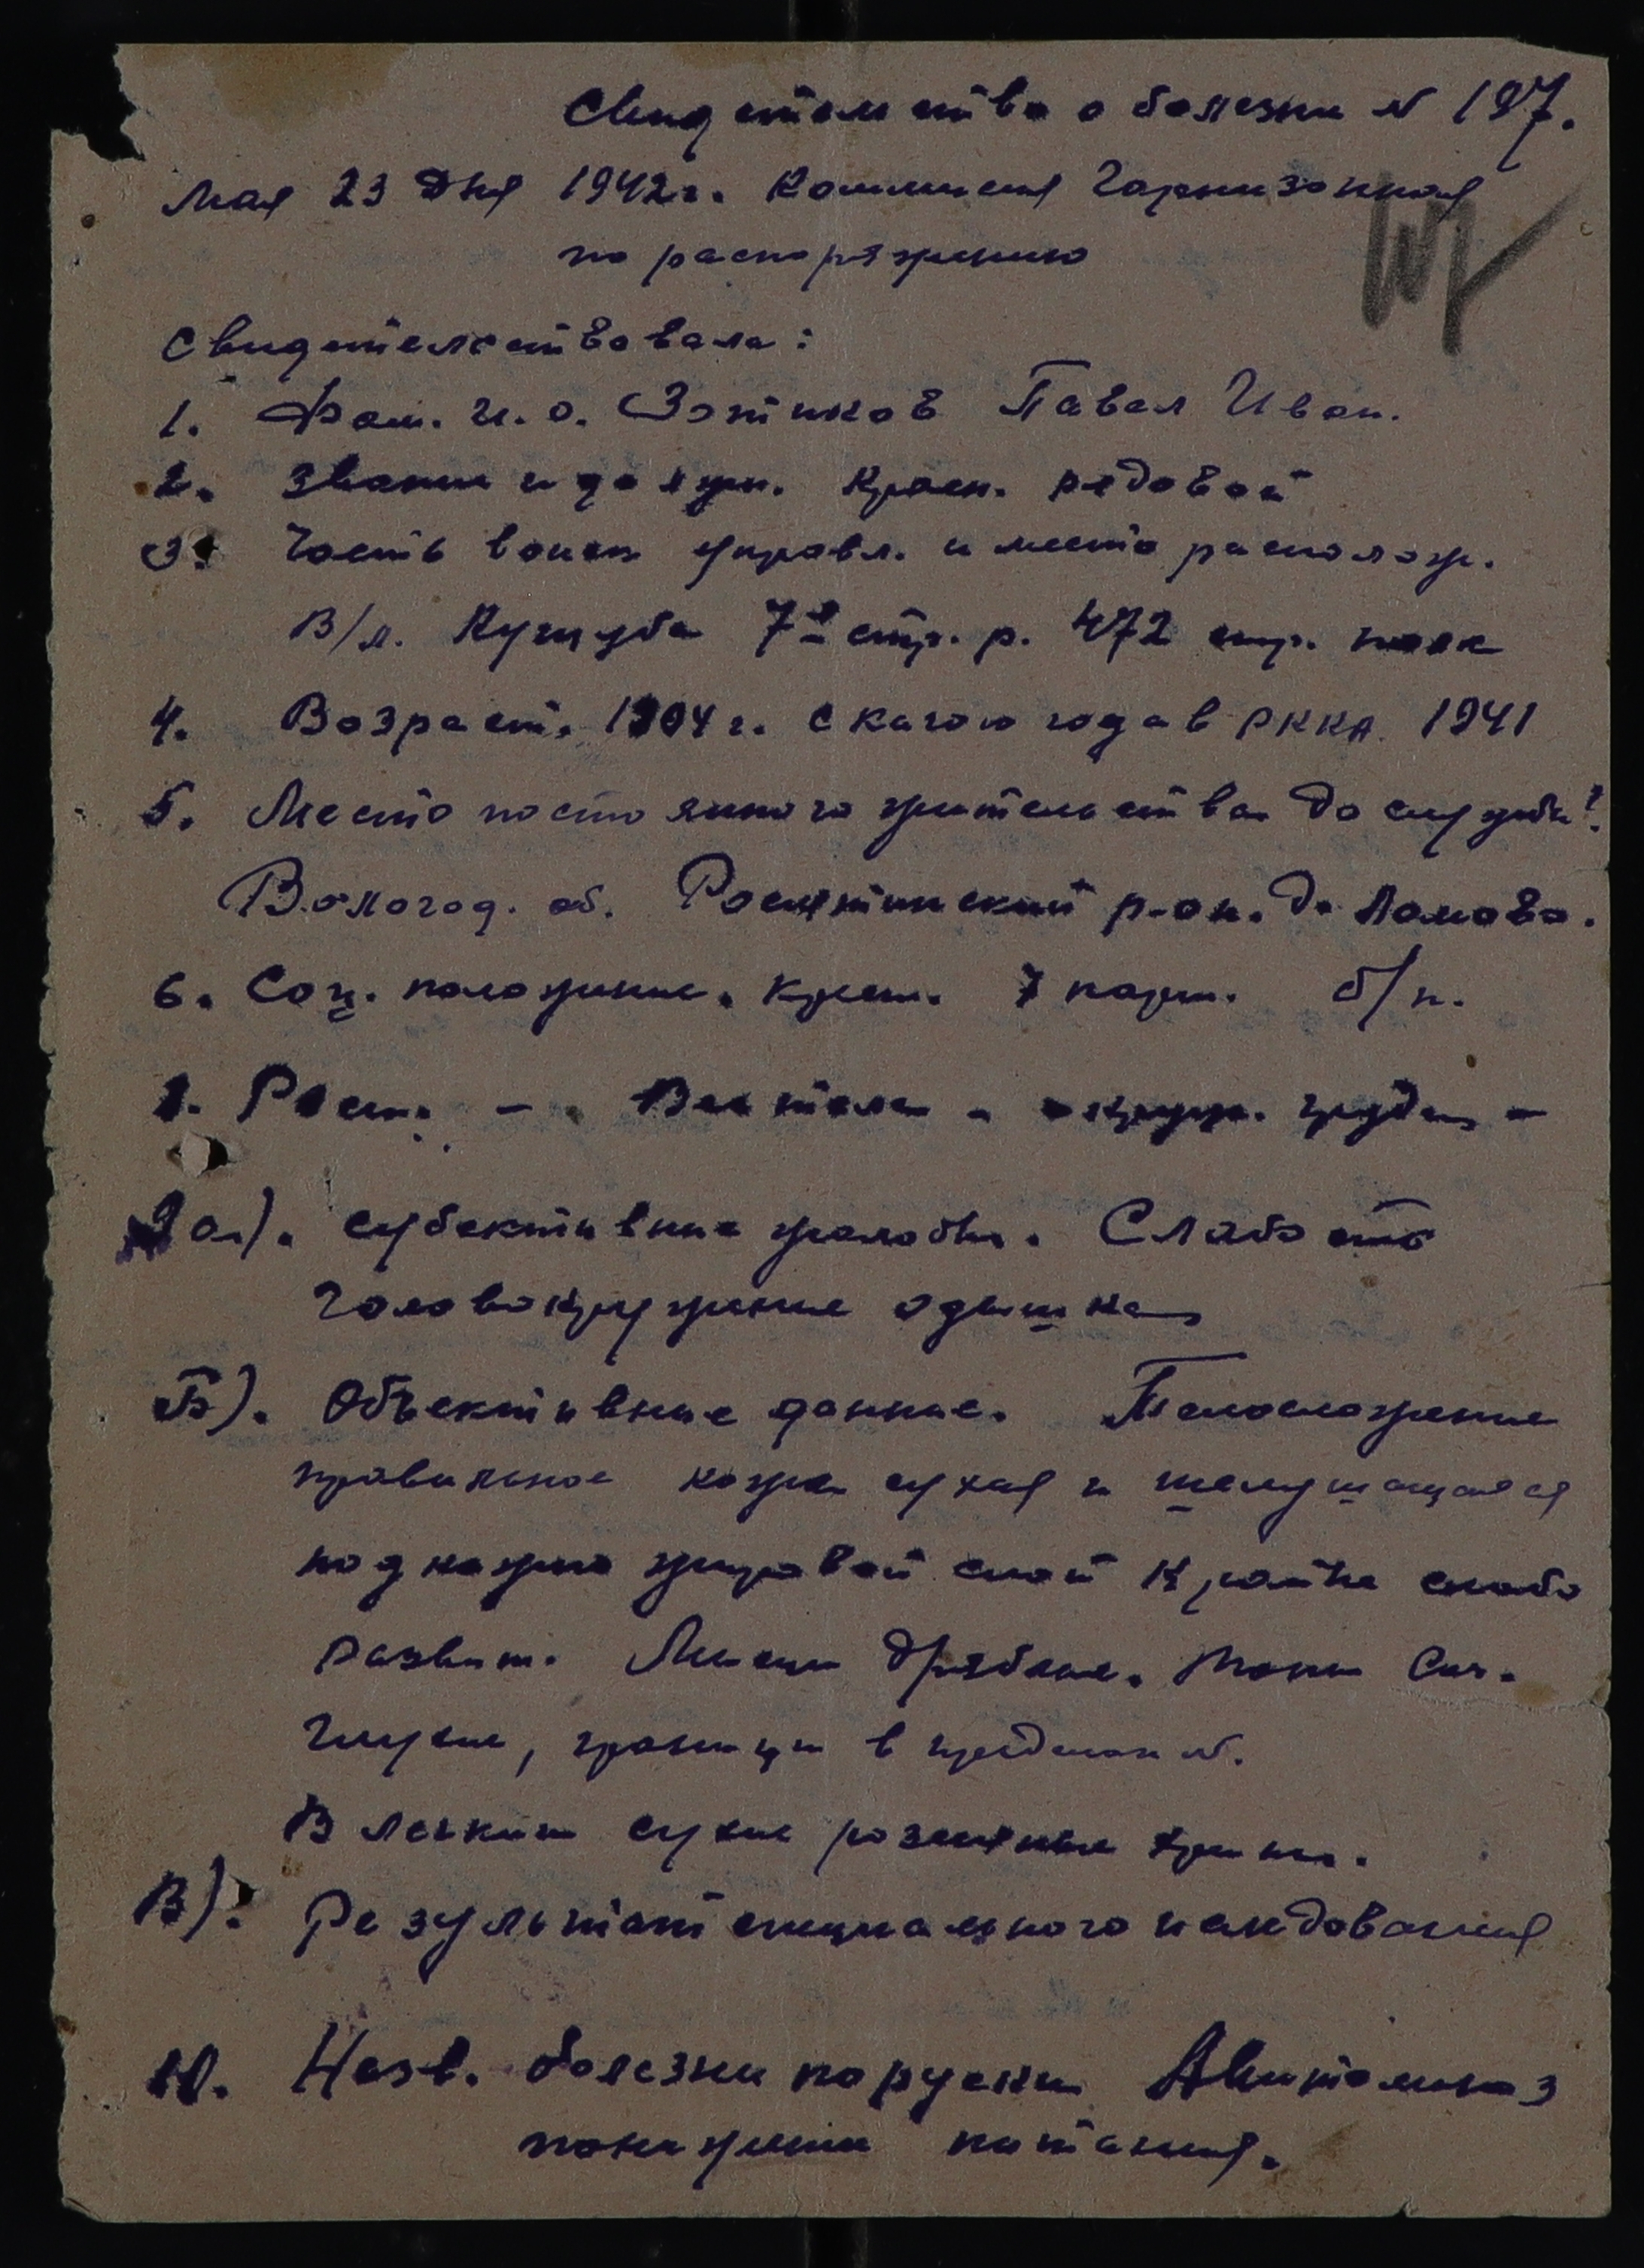 Свидетельство о болезни N 197.
Мая 23 дня 1942 г. Комиссия Гарнизонная
по распоряжению
свидетельствовала:
1. Фам. и. о. Зотиков Павел Иван.
2. Звание и должн. Красн. рядовой
3. Часть воен. управл. и место располож.
В/л. 7я стр. р. 472 стр. полк
4. Возраст. 1904 г. С какого года в РККА. 1941
5. Место постоянного жительства до службы?
Вологод. об. р-он. д. Ломово.
6. Соц. положение. Крест. 7 парт. б/п.
8. Рост. - Вес тела - окруж. груди -
9 а). субективные жалобы. Слабость
головокружение одышка
Б). Объективные данные. Телосложение
правильное кожа сухая и шелушащаяся
подкожно жировой слой крайне слабо
развит. Мышцы дряблые. Тоны Сер.
глухие, границы в пределах N.
В легких сухие рассеяные хрипы.
В). Результат специального исследования
10. Назв. болезни по русски Авитаминоз
понижение питания.